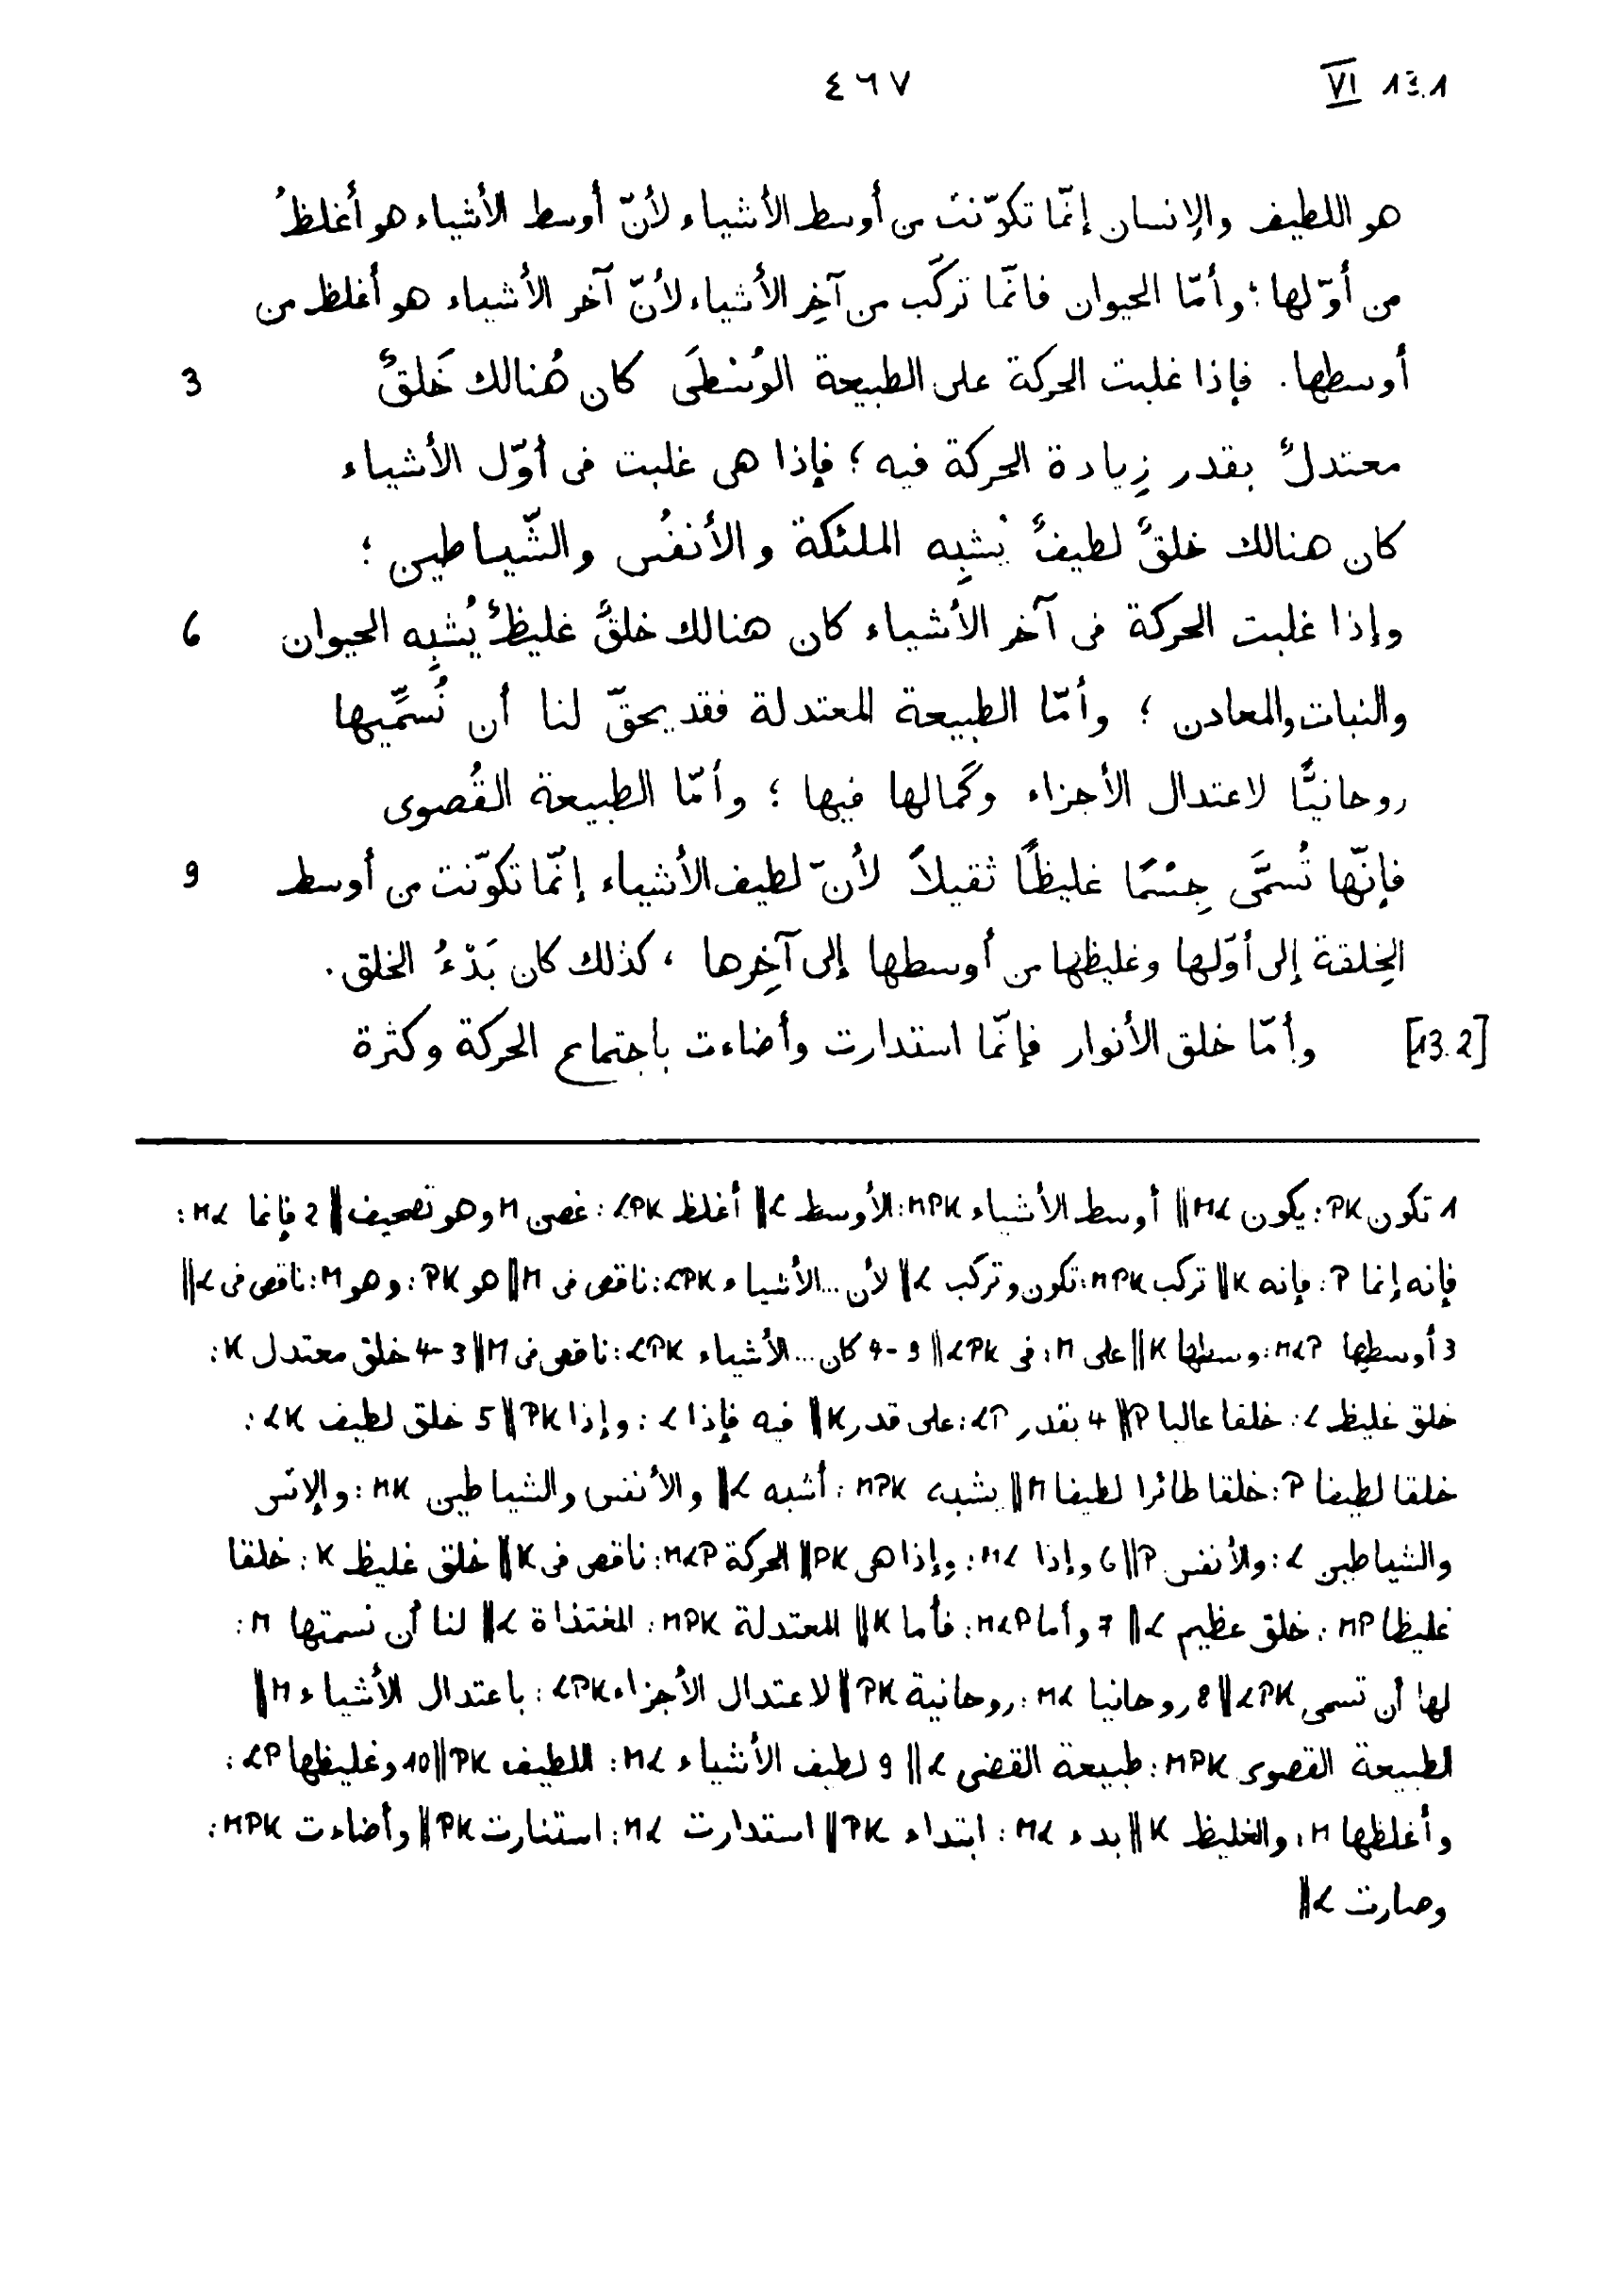 VI 13.1 ٤٦٧
هو اللطيف والإنسان إنّما تكوّنت من أوسط الأشياء لأنّ أوسط الأشياء هو أغلظُ
من أوّلها ؛ وأمّا الحيوان فانّما تركّب من آخِر الأشياء لأنّ آخر الأشياء هو أغلظ من
أوسطها. فإذا غلبت الحركة على الطبيعة الوُسْطَى كان هُنالك خَلقٌ 3
معتدلٌ بقدر زِيادة الحركة فيه ؛ فإذا هى غلبت فى أوّل الأشياء
كان هنالك خلقٌ لطيفٌ يُشبِه الملئكة والأنفُس والشّياطين ؛
وإذا غلبت الحركة فى آخر الأشياء كان هنالك خلقٌ غليظٌ يُشبِه الحيوان 6
والنبات والمعادن ؛ وأمّا الطبيعة المعتدلة فقد يحقّ لنا أن نُسمِّيها
روحانيًّا لاعتدال الأجزاء وكَمالها فيها ؛ وأمّا الطبيعة القُصوى
فإنّها تُسمَّى جِسْمًا غليظًا ثقيلاً لأنّ لطيف الأشياء إنّما تكوّنت من أوسط 9
الخِلقة إلى أوّلها وغليظها من أوسطها إلى آخِرها ، كذلك كان بَدْءُ الخلق .
[13.2] وأمّا خلق الأنوار فإنّما استدارت وأضاءت باجتماع الحركة وكثرة
1 تكون PK: يكون ML || أوسط الأشياء MPK: الأوسط L || أغلظ LPK: غصن M وهو تصحيف || 2 فإنما ML:
فإنه إنما P: فإنه K || تركب MPK: تكون وتركب L || لأن ... الأشياء LPK: ناقص فى M || هو PK: وهو M: ناقص فى L ||
3 أوسطها MLP: وسطها K || على M: فى LPK || 3-4 كان ... الأشياء LPK: ناقص فى M || 3-4 خلق معتدل K:
خلق غليظ L: خلقا عاليا P || 4 بقدر LP: على قدر K || فيه فإذا L: وإذا PK || 5 خلق لطيف LK:
خلقا لطيفا P: خلقا طائرا لطيفا M || يشبه MPK: أشبه L || والأنفس والشياطين MK: والإنس
والشياطين L: والأنفس P || 6 وإذا ML: وإذا هى PK || الحركة MLP: ناقص فى K || خلق غليظ K: خلقا
غليظا MP: خلق عظيم L || 7 وأما MLP: فأما K || المعتدلة MPK: المغتذاة L || لنا أن نسمتها M:
لها أن تسمى LPK || 8 روحانيا ML: روحانية PK || لاعتدال الأجزاء LPK: باعتدال الأشياء M ||
لطبيعة القصوى MPK: طبيعة القضى L || 9 لطيف الأشياء ML: اللطيف PK || 10 وغليظها LP:
وأغلظها M: والغليظ K || بدء ML: ابتداء PK || استدارت ML: استنارت PK || وأضاءت MPK:
وصارت L ||